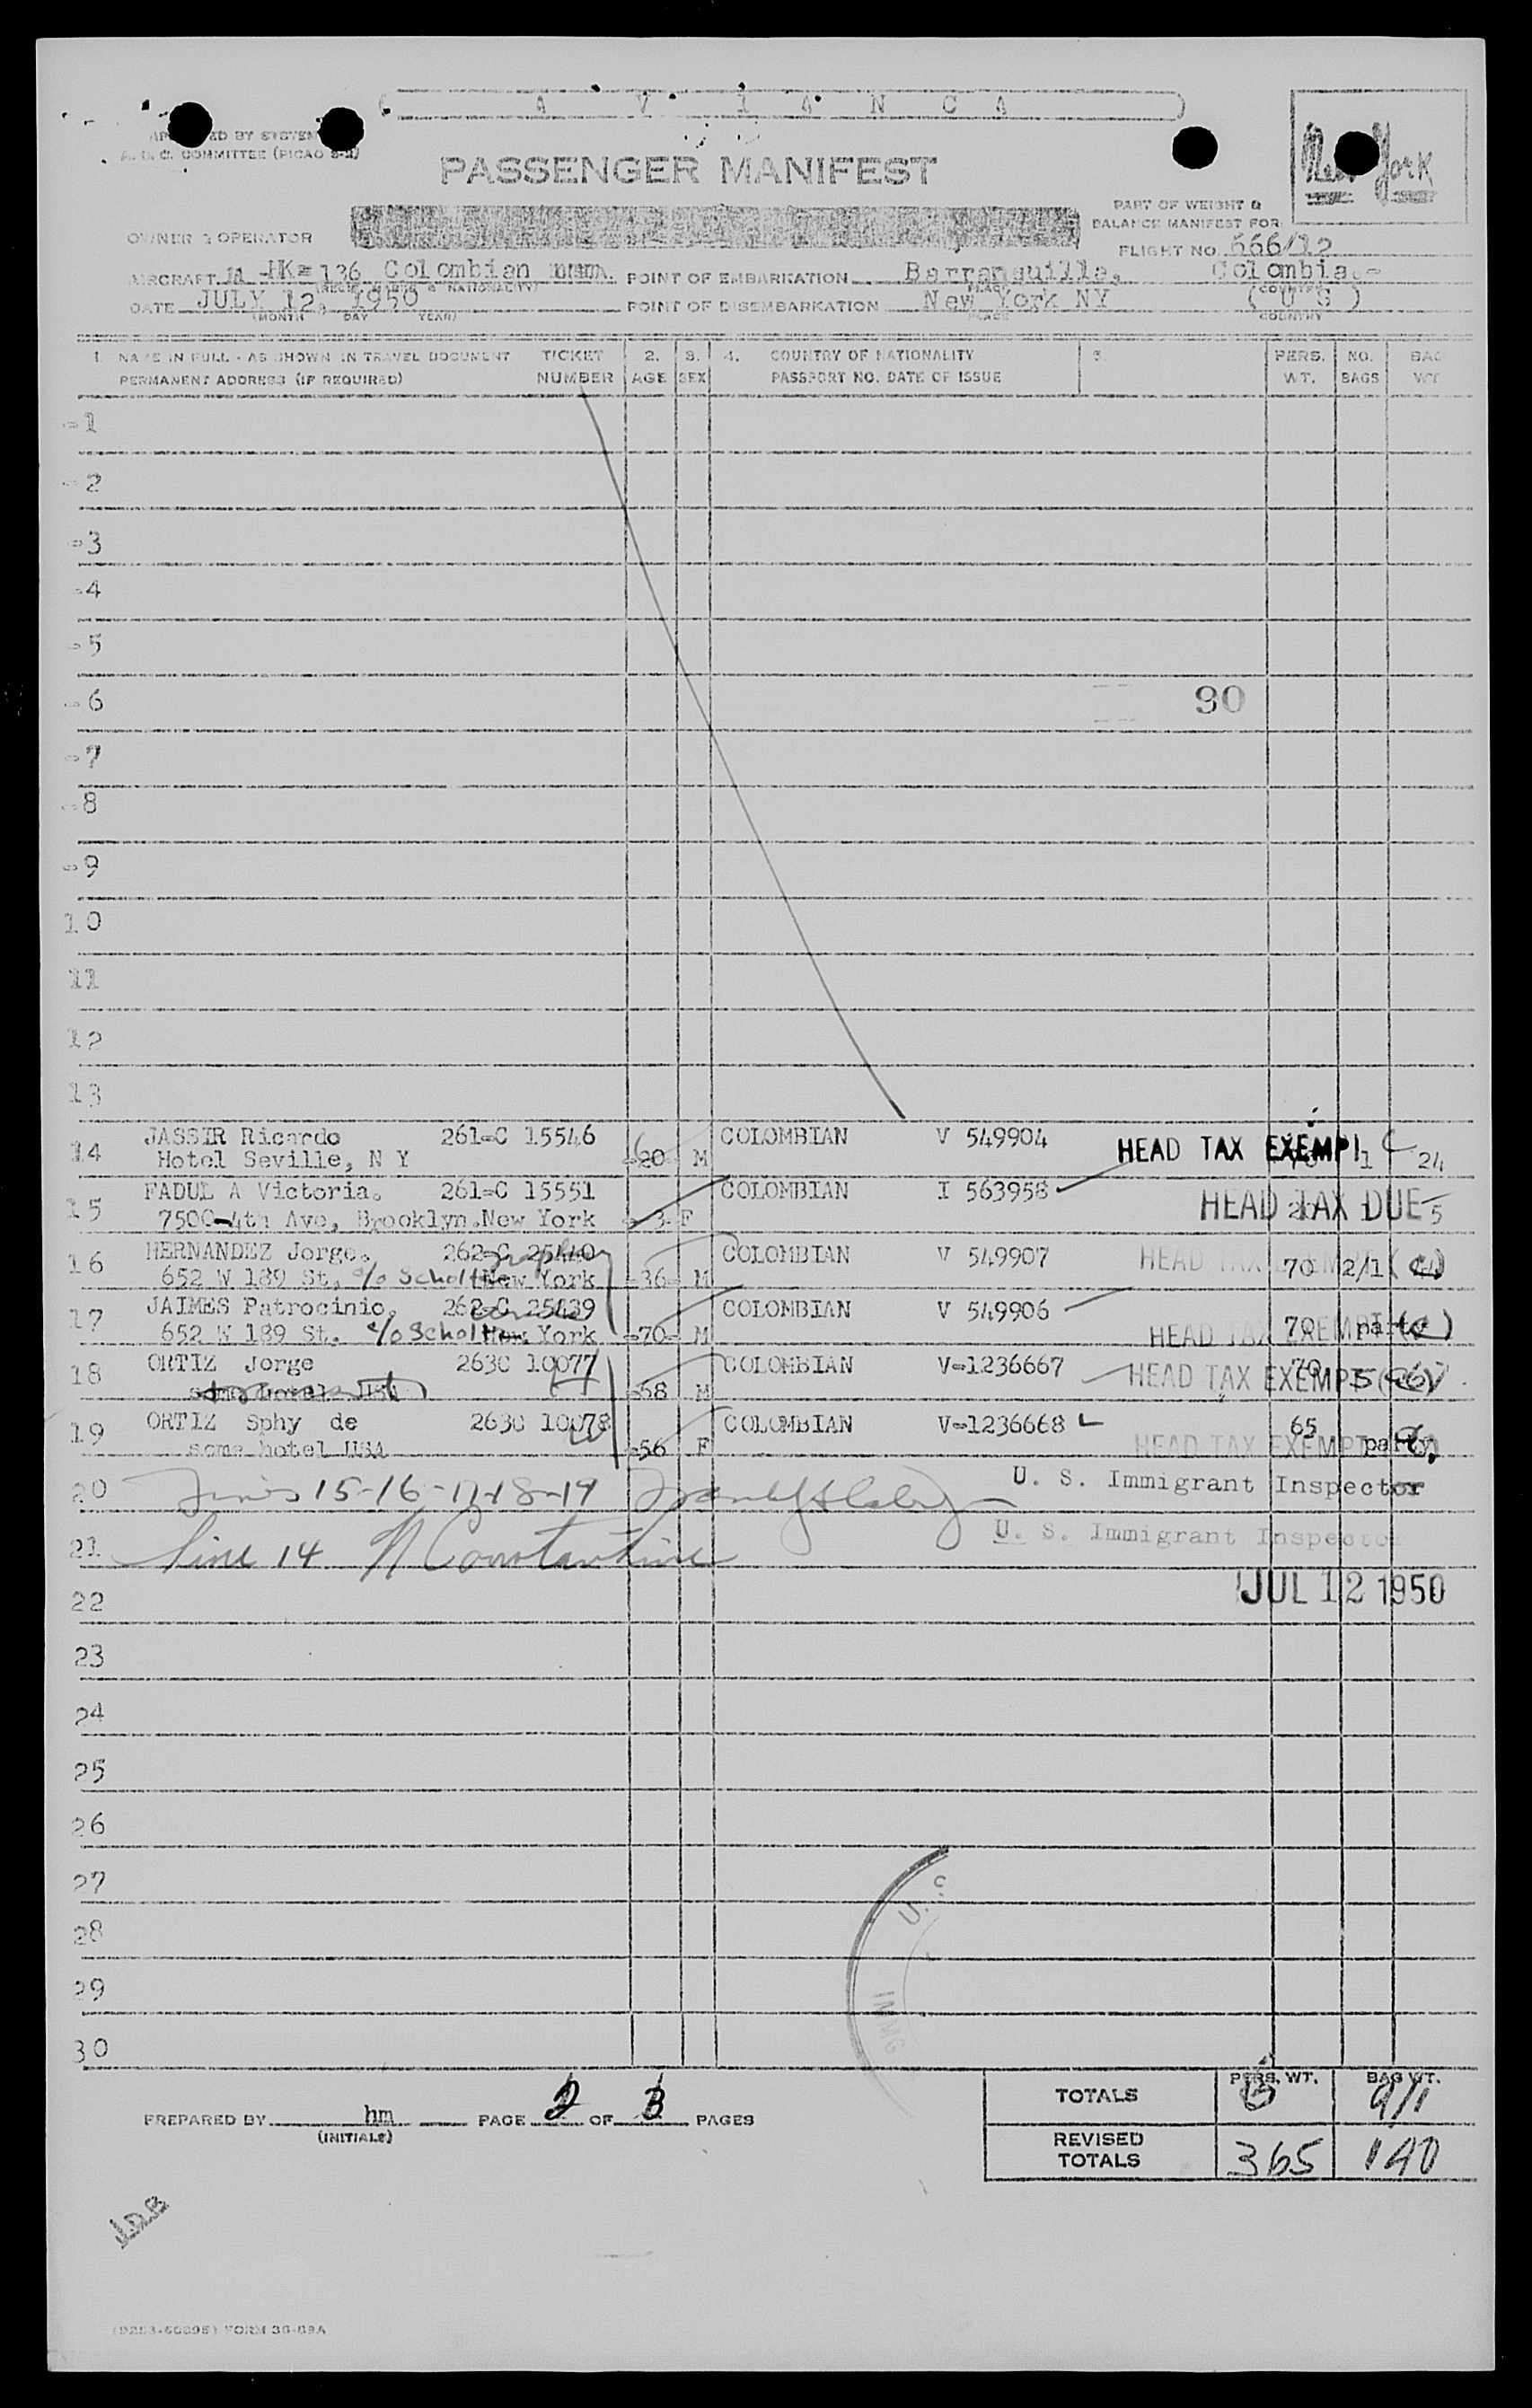 A V I A N C A
ED BY SYSTEM
A. O. C. COMMITTEE (PICAO S-2)
New York
PASSENGER MANIFEST
PART OF WEIGHT &
BALANCE MANIFEST FOR
OWNER & OPERATOR
FLIGHT NO. 666/12
AIRCRAFT HK= 136 Colombian POINT OF EMBARKATION Barranquilla, Colombia.-
DATE JULY 12, 1950 POINT OF DISEMBARKATION New York NY ( U S )
(MONTH DAY YEAR) PLACE COUNTRY
1. NAME IN FULL - AS SHOWN IN TRAVEL DOCUMENT TICKET 2. 3. 4. COUNTRY OF NATIONALITY 5. PERS. NO. BAG
PERMANENT ADDRESS (IF REQUIRED) NUMBER AGE SEX PASSPORT NO. DATE OF ISSUE WT. BAGS WT
=1
=2
=3
=4
=5
=6 90
=7
=8
=9
10
11
12
13
14 JASSIR Ricardo 261=C 15546 20 M COLOMBIAN V 549904 HEAD TAX EXEMPT 1 24
Hotel Seville, N Y
15 FADUL A Victoria. 261=C 15551 3 F COLOMBIAN I 563958 HEAD TAX DUE 5
7500-4th Ave, Brooklyn.New York
16 HERNANDEZ Jorge. 262=C 25440 =36= M COLOMBIAN V 549907 HEAD TAX EXEMPT 70 2/1
652 W 189 St. c/o Scholten New York
17 JAIMES Patrocinio. 262=C 25439 =70= M COLOMBIAN V 549906 HEAD TAX EXEMPT 70 party
652 W 189 St. c/o Scholten New York
18 ORTIZ Jorge 263C 10077 =58 M COLOMBIAN V=1236667 HEAD TAX EXEMPT 70 5
same hotel USA
19 ORTIZ Sphy de 263C 10078 =56 F COLOMBIAN V=1236668 HEAD TAX EXEMPT 65 party
same hotel USA
20 Lines 15-16-17-18-19 U. S. Immigrant Inspector
21 Line 14 N Constantine U. S. Immigrant Inspector
22 JUL 12 1950
23
24
25
26
27
28
29
30
U. S.
IMMIG
TOTALS PERS. WT. 6 BAG WT. 9/1
PREPARED BY hm PAGE 2 OF 3 PAGES
(INITIALS)
REVISED TOTALS 365 140
FORM 36-69A